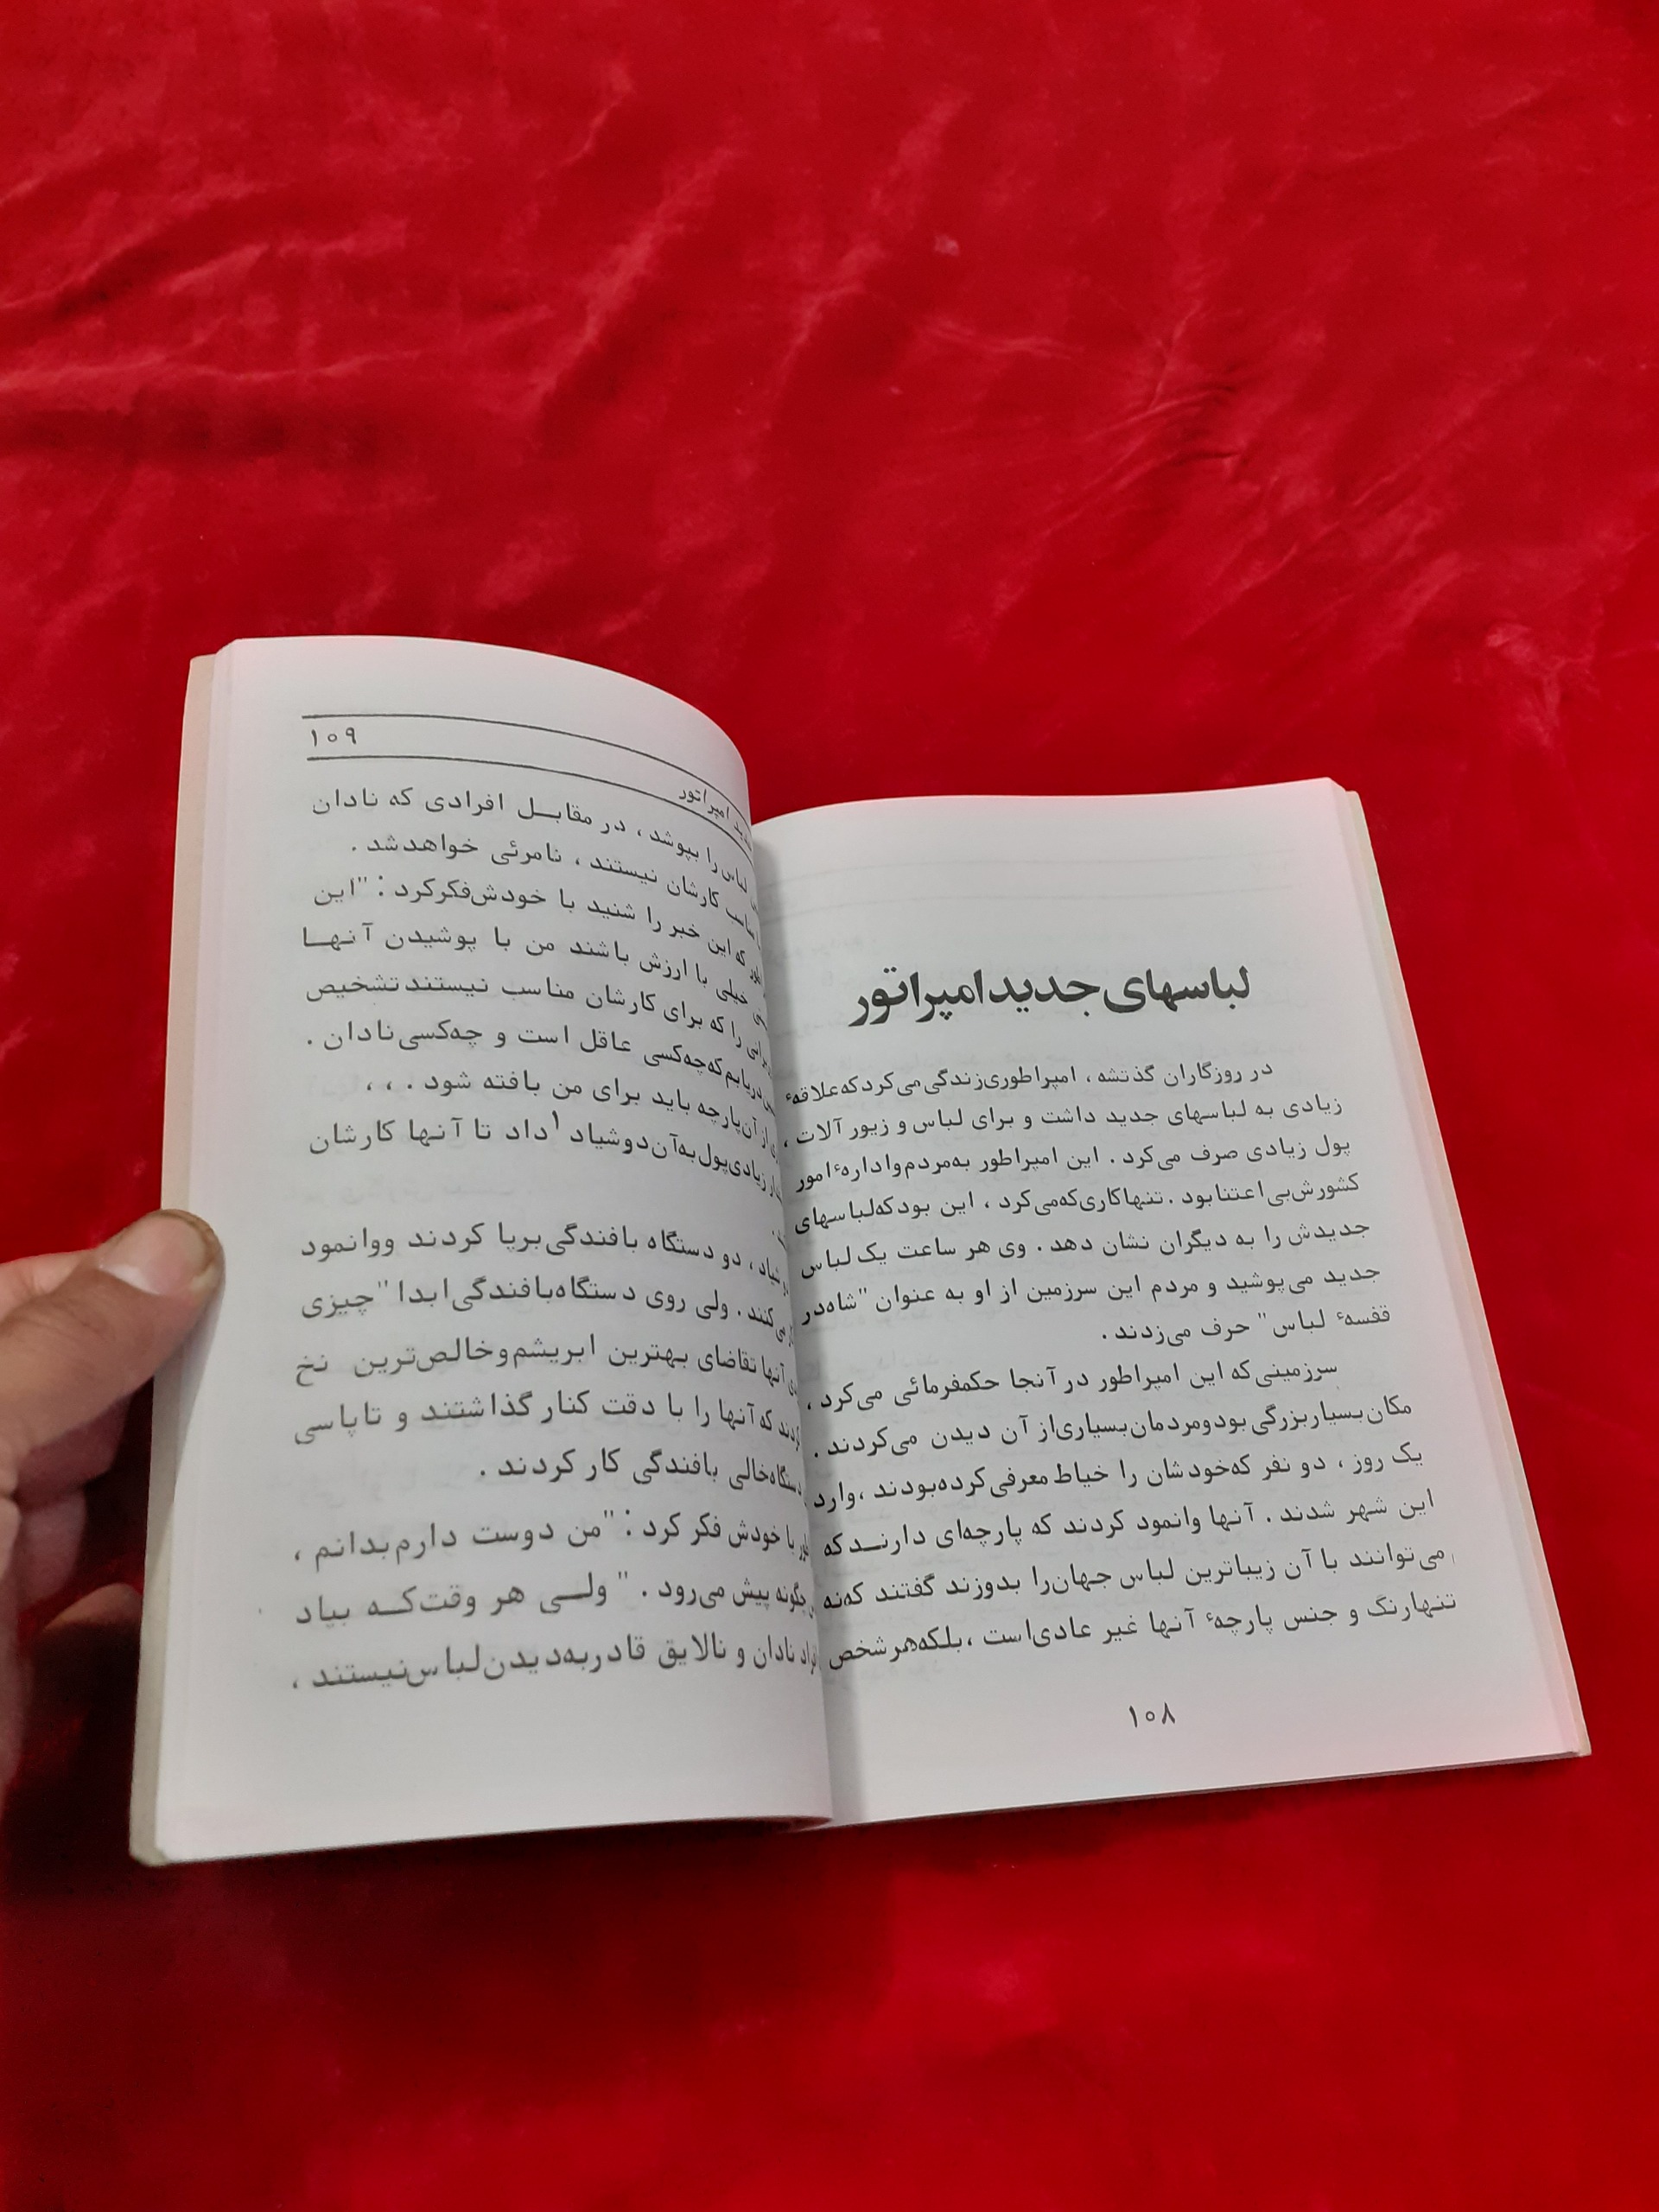 لباسهای جدید امپراتور
در روزگاران گذتشه، امپراطوری زندگی می‌کرد که علاقهٔ
زیادی به لباسهای جدید داشت و برای لباس و زیور آلات،
پول زیادی صرف می‌کرد. این امپراطور به مردم و ادارهٔ امور
کشورش بی اعتنا بود. تنها کاری که می‌کرد، این بود که لباسهای
جدیدش را به دیگران نشان دهد. وی هر ساعت یک لباس
جدید می‌پوشید و مردم این سرزمین از او به عنوان "شاه در
قفسهٔ لباس" حرف می‌زدند.
سرزمینی که این امپراطور در آنجا حکمفرمائی می‌کرد،
مکان بسیار بزرگی بود و مردمان بسیاری از آن دیدن می‌کردند.
یک روز، دو نفر که خودشان را خیاط معرفی کرده بودند، وارد
این شهر شدند. آنها وانمود کردند که پارچه‌ای دارند که
می‌توانند با آن زیباترین لباس جهان را بدوزند گفتند که نه
تنها رنگ و جنس پارچهٔ آنها غیر عادی است، بلکه هر شخص
۱۰۸
۱۰۹
امپراتور
لباس را بپوشد، در مقابل افرادی که نادان
کارشان نیستند، نامرئی خواهد شد.
که این خبر را شنید با خودش فکر کرد: "این
خیلی با ارزش باشند من با پوشیدن آنها
را که برای کارشان مناسب نیستند تشخیص
دریابم که چه‌کسی عاقل است و چه‌کسی نادان.
از آن پارچه باید برای من بافته شود. ، ،
زیادی پول به آن دو شیاد ۱ داد تا آنها کارشان
دو دستگاه بافندگی برپا کردند و وانمود
می کنند. ولی روی دستگاه بافندگی ابدا" چیزی
آنها تقاضای بهترین ابریشم و خالص‌ترین نخ
که آنها را با دقت کنار گذاشتند و تا پاسی
خالی بافندگی کار کردند.
با خودش فکر کرد: "من دوست دارم بدانم،
چگونه پیش می‌رود." ولی هر وقت که بیاد
نادان و نالایق قادر به دیدن لباس نیستند،